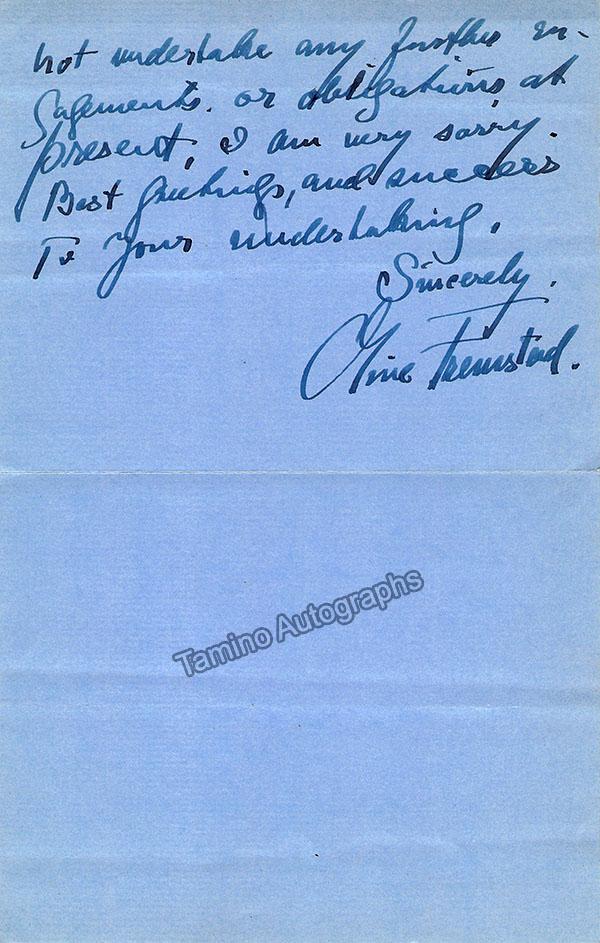 not undertake any further en-
gagements. or obligations at
present, I am very sorry.
Best greetings, and success
To your undertaking.
Sincerely.
Olive Fremstad.
Tamino Autographs